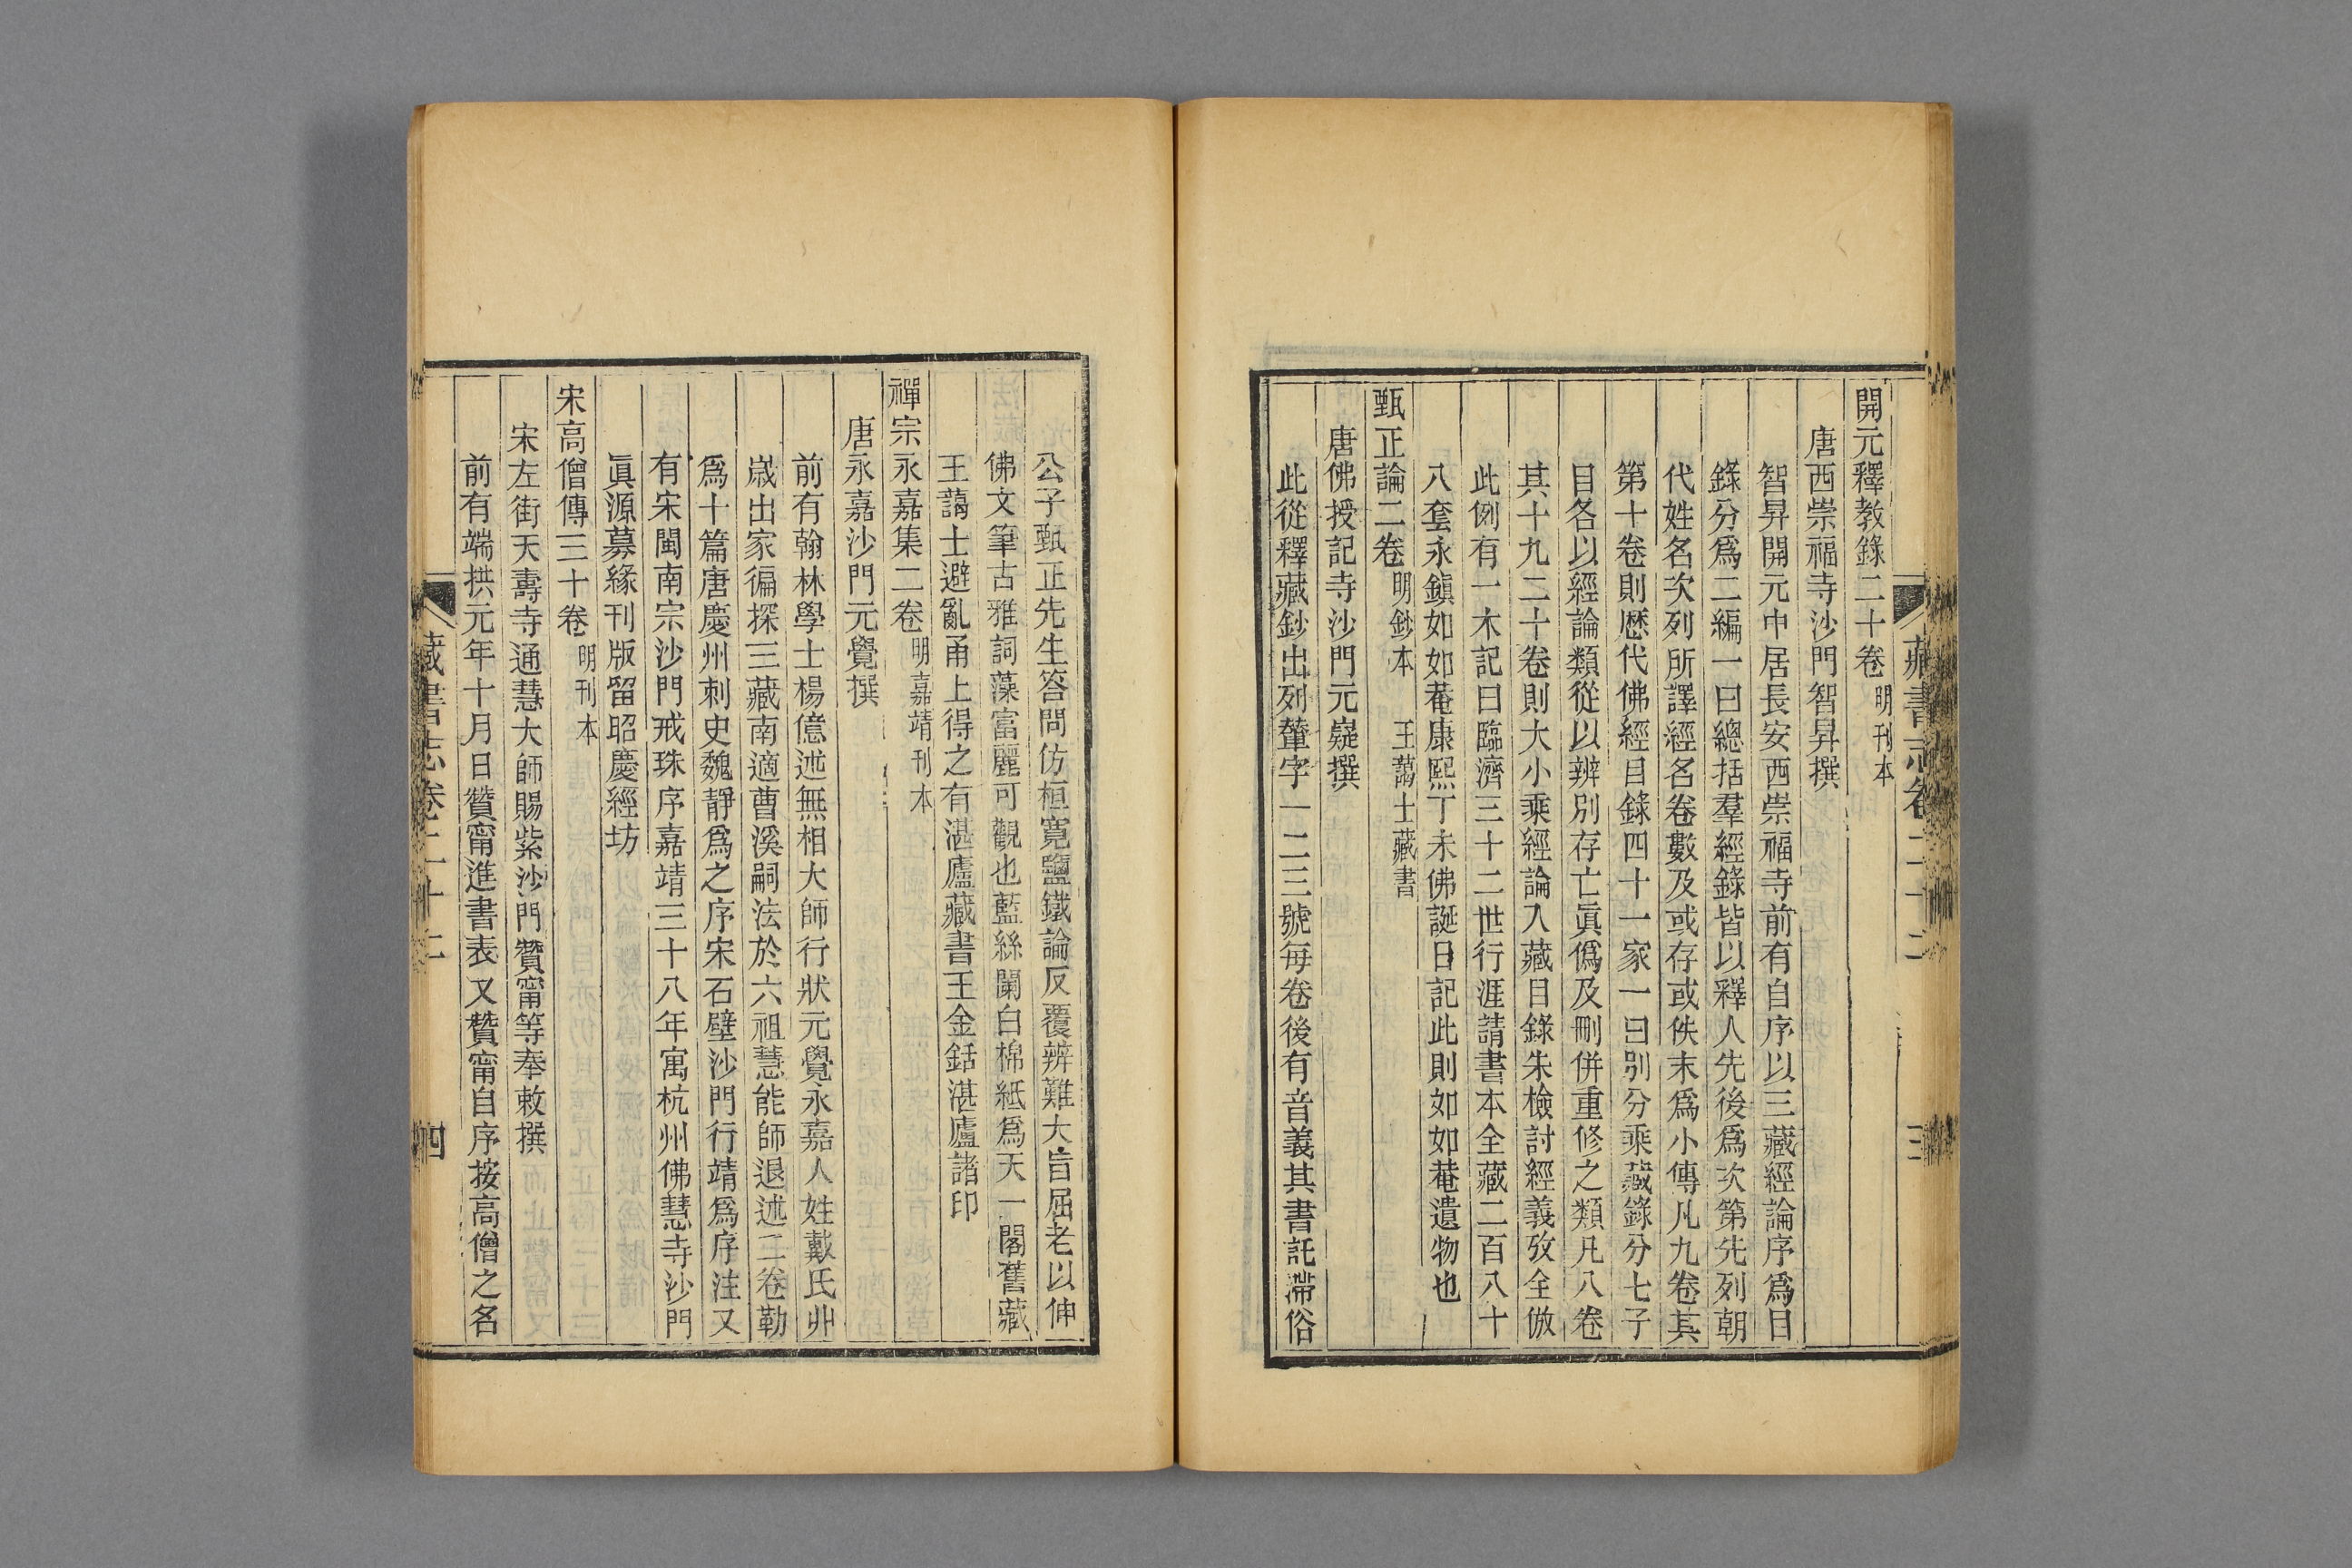 開元釋教錄二十卷 明刊本
唐西崇福寺沙門智昇撰
智昇開元中居長安西崇福寺前有自序以三藏經論序爲目
錄分爲二編一曰總括羣經錄皆以釋人先後爲次第先列朝
代姓名次列所譯經名卷數及或存或佚末爲小傳凡九卷其
第十卷則歷代佛經目錄四十一家一曰別分乘藏錄分七子
目各以經論類從以辨別存亡眞僞及刪併重修之類凡八卷
其十九二十卷則大小乘經論入藏目錄朱檢討經義攷全倣
此例有一木記曰臨濟三十二世行涯請書本全藏二百八十
八套永鎭如如菴康熙丁未佛誕日記此則如如菴遺物也
甄正論二卷 明鈔本 王藹士藏書
唐佛授記寺沙門元嶷撰
此從釋藏鈔出列輦字一二三號每卷後有音義其書託滯俗
藏書志卷二十二 三
公子甄正先生答問仿桓寬鹽鐵論反覆辨難大旨屈老以伸
佛文筆古雅詞藻富麗可觀也藍絲闌白棉紙爲天一閣舊藏
王藹士避亂甬上得之有湛廬藏書王金銛湛廬諸印
禪宗永嘉集二卷 明嘉靖刊本
唐永嘉沙門元覺撰
前有翰林學士楊億述無相大師行狀元覺永嘉人姓戴氏丱
歲出家徧探三藏南適曹溪嗣法於六祖慧能師退述二卷勒
爲十篇唐慶州刺史魏靜爲之序宋石壁沙門行靖爲序注又
有宋閩南宗沙門戒珠序嘉靖三十八年寓杭州佛慧寺沙門
眞源募緣刊版留昭慶經坊
宋高僧傳三十卷 明刊本
宋左街天壽寺通慧大師賜紫沙門贊甯等奉敕撰
前有端拱元年十月日贊甯進書表又贊甯自序按高僧之名
藏書志卷二十二 四